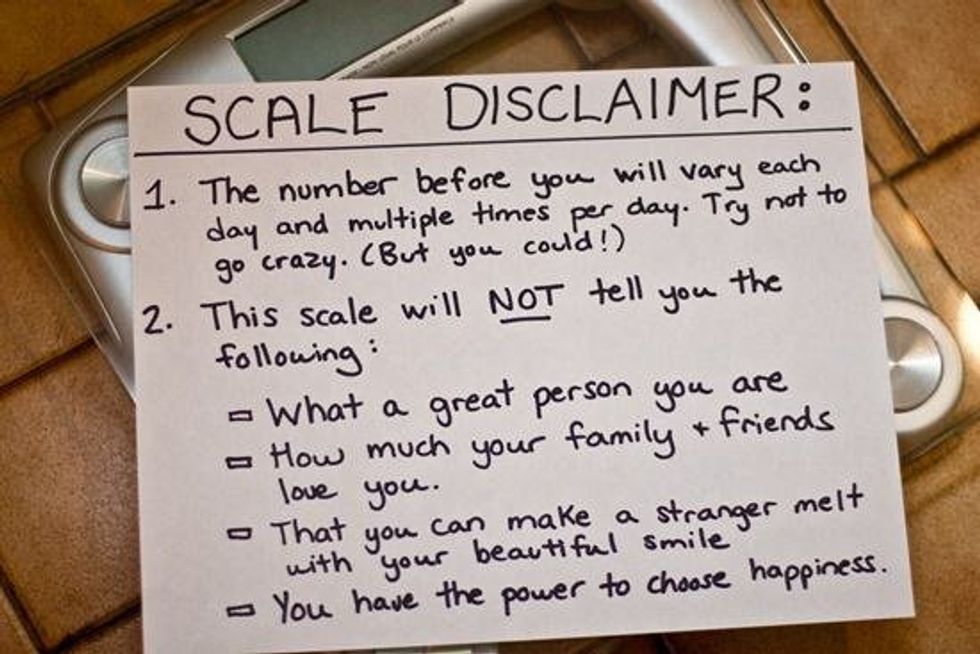 SCALE DISCLAIMER:
1. The number before you will vary each
day and multiple times per day. Try not to
go crazy. (But you could!)
2. This scale will NOT tell you the
following:
What a great person you are
How much your family + friends
love you.
That you can make a stranger melt
with your beautiful smile
You have the power to choose happiness.